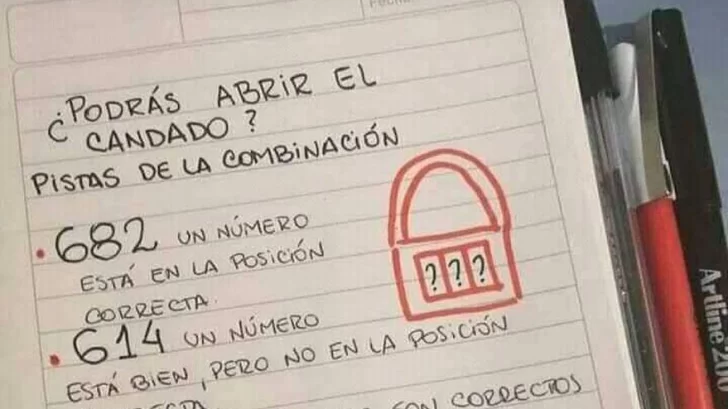 Fecha
¿PODRÁS ABRIR EL
CANDADO?
PISTAS DE LA COMBINACIÓN
• 682 UN NÚMERO
ESTÁ EN LA POSICIÓN
CORRECTA.
? ? ?
• 614 UN NÚMERO
ESTÁ BIEN, PERO NO EN LA POSICIÓN
CORRECTOS
Artline 200